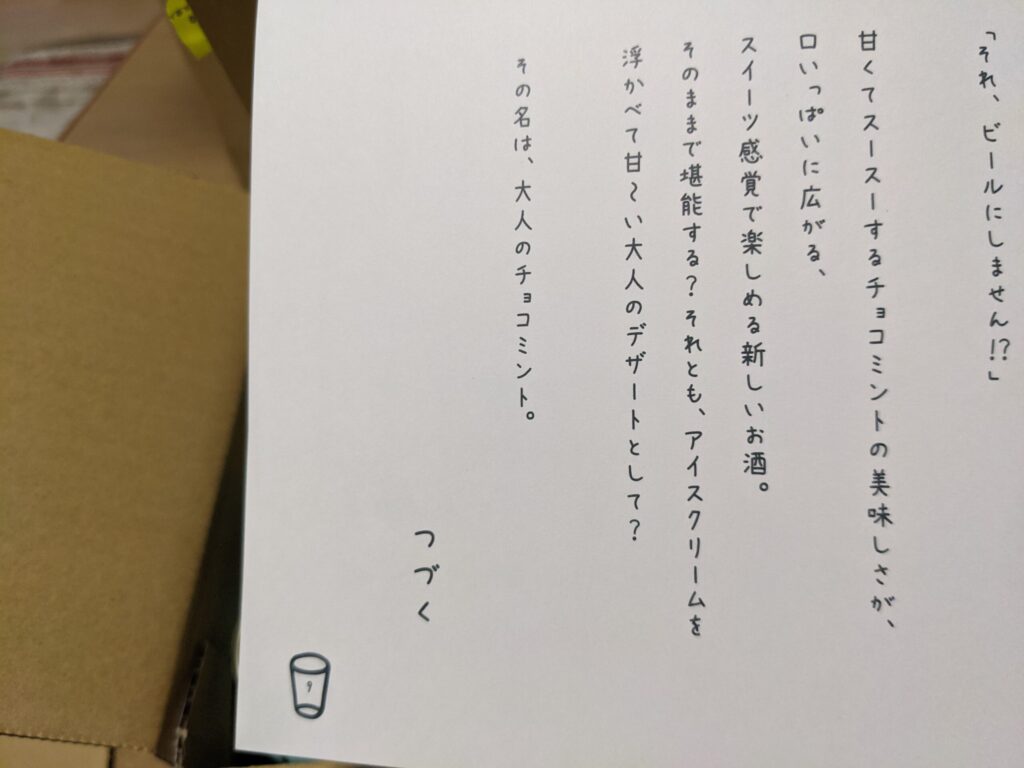 「それ、ビールにしません!?」
甘くてスースーするチョコミントの美味しさが、
口いっぱいに広がる、
スイーツ感覚で楽しめる新しいお酒。
そのままで堪能する?それとも、アイスクリームを
浮かべて甘〜い大人のデザートとして?
その名は、大人のチョコミント。
つづく
9